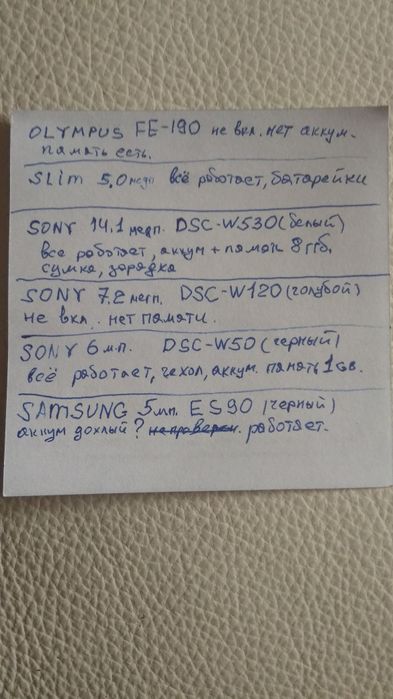 OLYMPUS FE-190 не вкл. нет аккум.
память есть.
Slim 5.0 мегп всё работает, батарейки
SONY 14.1 мегп. DSC-W530 (белый)
все работает, аккум + память 8 гб,
сумка, зарядка
SONY 7.2 мегп. DSC-W120 (голубой)
не вкл.. нет памяти.
SONY 6 м.п. DSC-W50 (черный)
всё работает, чехол, аккум. память 1GB.
SAMSUNG 5 мп. ES90 (черный)
аккум дохлый? не проверен. работает.